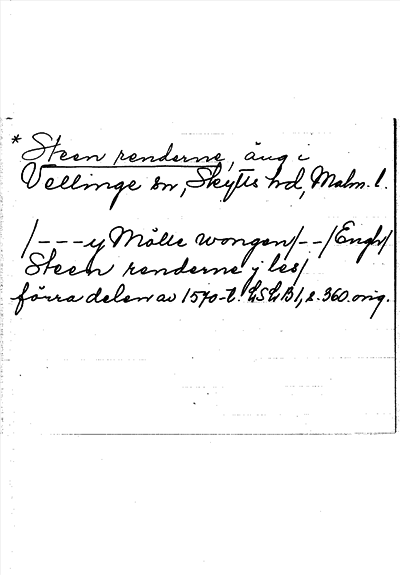 * Steen renderne, äng i
Vellinge sn, Skytts hd, Malm. l.
/---y Mölle wongen/--/Engh/
Steen renderne j les/
förra delen av 1570-t. LSLB 1, s. 360. orig.